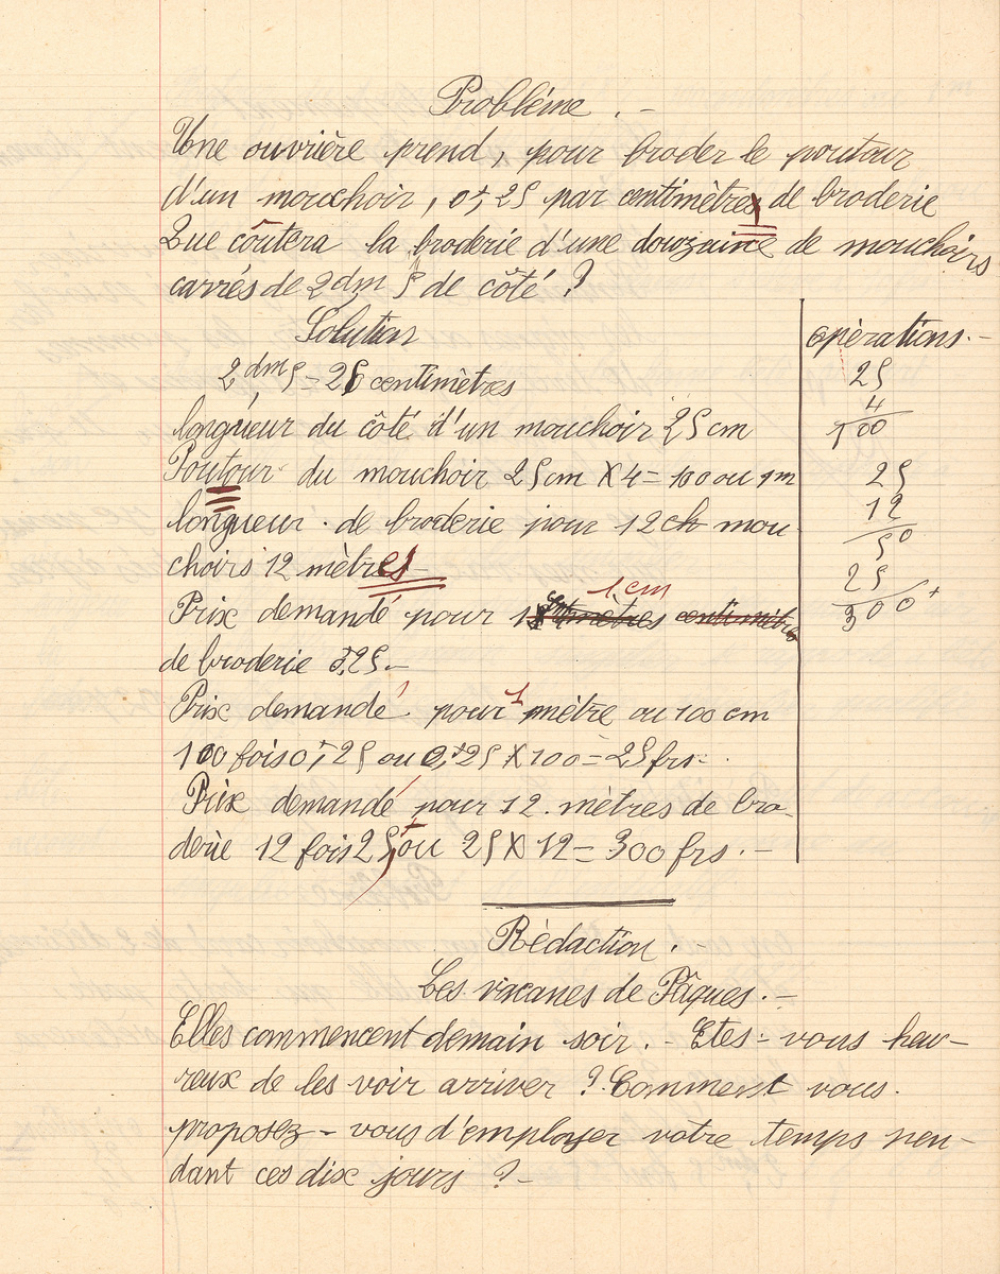 Problème. -
Une ouvrière prend, pour broder le poutour
d'un mouchoir, 0f,25 par centimètres de broderie
Que coûtera la broderie d'une douzaine de mouchoirs
carrés de 2dm 5 de côté ?
Solution
2,dm5 = 25 centimètres
longueur du côté d'un mouchoir 25 cm
Poutour du mouchoir 25cm X 4 = 100 ou 1m
longueur de broderie pour 12 ch mou-
choirs 12 mètres -
1 cm
Prix demandé pour 1 centimètres
de broderie 0,25. -
Prix demandé pour 1 mètre ou 100 cm
100 fois 0f,25 ou 0,f25 X 100 = 25 frs.
Prix demandé pour 12 mètres de bro-
derie 12 fois 25f ou 25 X 12 = 300 frs. -
opèrations. -
25
4
100
25
12
50
25
300 +
Rèdaction. -
Les vacanes de Pâques. -
Elles commencent demain soir. - Etes-vous heu-
reux de les voir arriver ? Comment vous
proposez-vous d'employer votre temps pen-
dant ces dix jours ? -